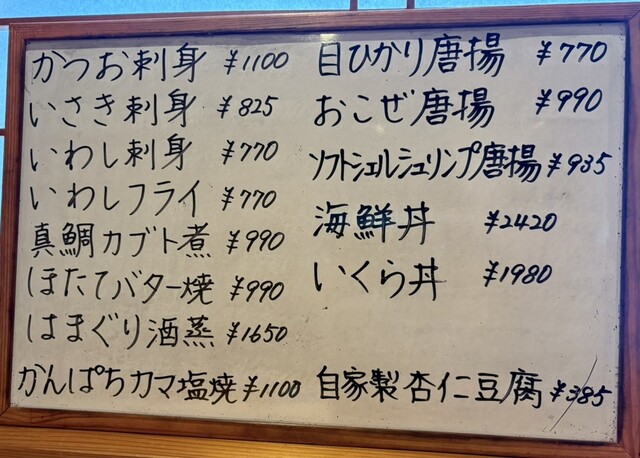 かつお刺身 ¥1100
いさき刺身 ¥825
いわし刺身 ¥770
いわしフライ ¥770
真鯛カブト煮 ¥990
ほたてバター焼 ¥990
はまぐり酒蒸 ¥1650
かんぱちカマ塩焼 ¥1100
目ひかり唐揚 ¥770
おこぜ唐揚 ¥990
ソフトシェルシュリンプ唐揚 ¥935
海鮮丼 ¥2420
いくら丼 ¥1980
自家製杏仁豆腐 ¥385